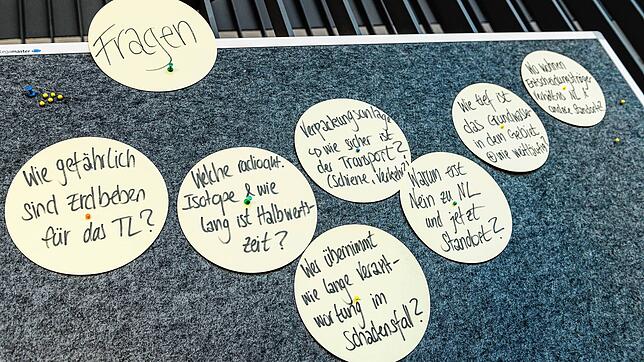 Legamaster
Fragen
Wie gefährlich
sind Erdbeben
für das TL?
Welche radioakt.
Isotope & wie
lang ist Halbwerts-
zeit?
Verpackungsanlage
wie sicher ist
der Transport?
(Schiene, Verkehr?)
Wer übernimmt
wie lange Verant-
wortung im
Schadensfall?
Warum erst
Nein zu NL
und jetzt
Standort?
Wie tief ist
das Grundwasser
in dem Gebiet,
wie
Wo wohnen
Entscheidungsträger
Verhältnis NL &
andere Standorte?